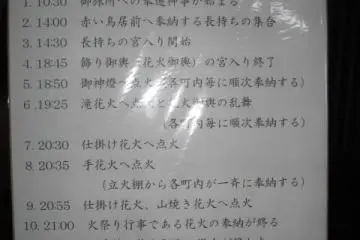 1. 10:30 御旅所への奉遷神事が始まる
2. 14:00 赤い鳥居前へ奉納する長持ちの集合
3. 14:30 長持ちの宮入り開始
4. 18:45 飾り御輿(花火御輿)の宮入り終了
5. 18:50 御神燈へ点火(各町内毎に順次奉納する)
6. 19:25 滝花火へ点火と 御輿の乱舞
(各町内毎に順次奉納する)
7. 20:30 仕掛け花火へ点火
8. 20:35 手花火へ点火
(立火棚から各町内が一斉に奉納する)
9. 20:55 仕掛け花火、山焼き花火へ点火
10. 21:00 火祭り行事である花火の奉納が終る